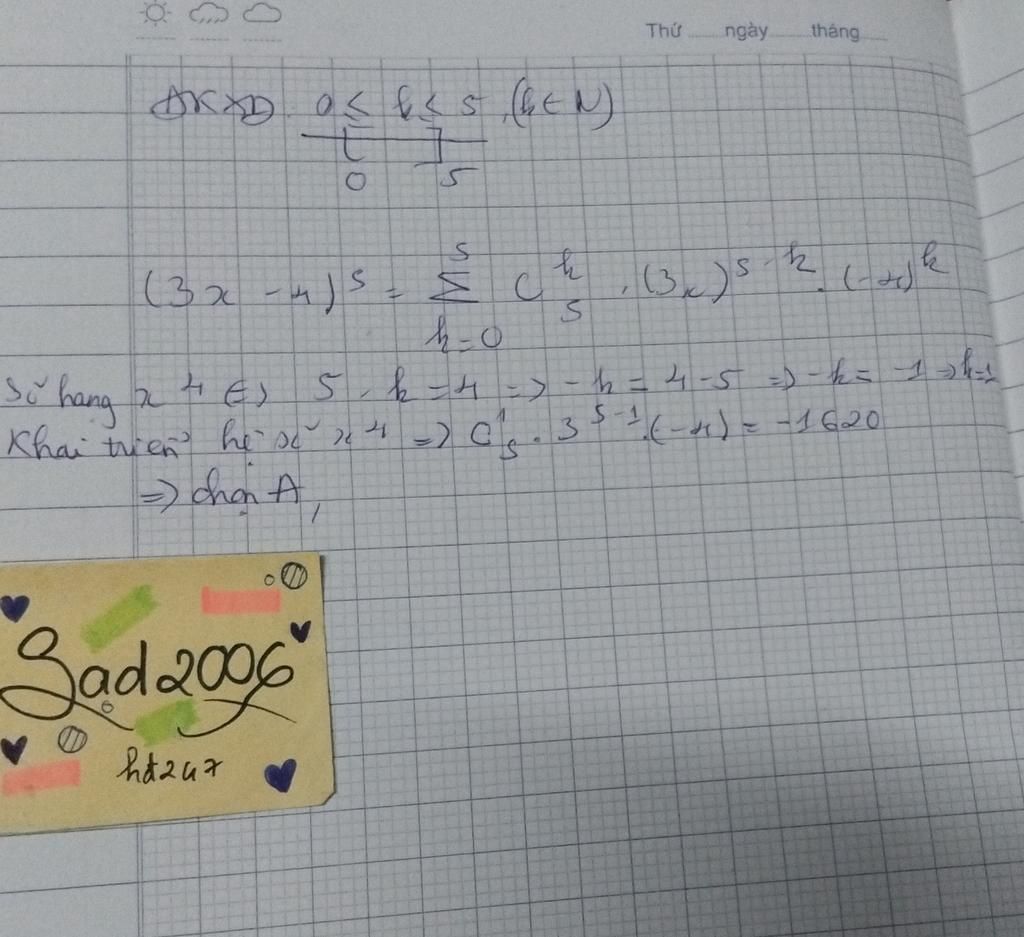 Thứ ngày tháng
ĐKXĐ 0 ≤ k ≤ 5, (k ∈ N)
0 5
(3x - 4)^5 = \sum_{k=0}^{5} C_5^k . (3x)^{5-k} . (-4)^k
Số hạng x^4 <=> 5 - k = 4 => -k = 4-5 => -k = -1 => k=1
Khai triển hệ số x^4 => C_5^1 . 3^{5-1} . (-4) = -1620
=> chọn A,
Sad2006
hd247